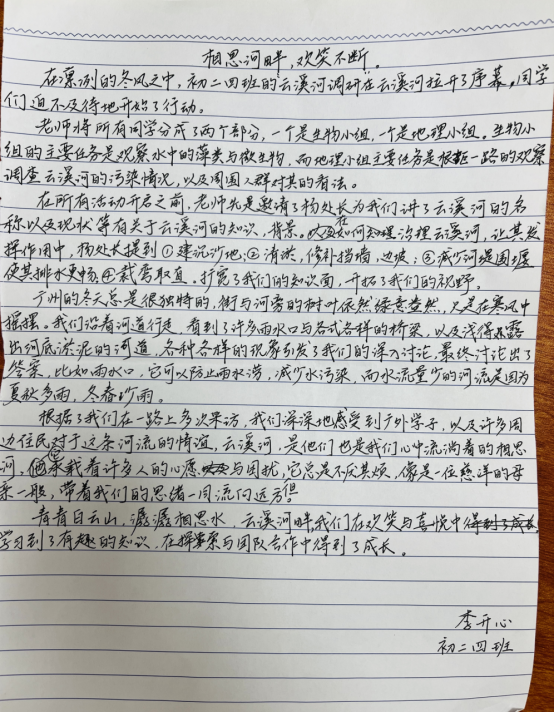 相思河畔,欢笑不断。
在凛冽的冬风之中,初二四班的云溪河调研在云溪河拉开了序幕。同学
们迫不及待地开始了行动。
老师将所有同学分成了两个部分,一个是生物小组,一个是地理小组。生物小
组的主要任务是观察水中的藻类与微生物,而地理小组主要任务是根据一路的观察
调查云溪河的污染情况,以及周围人群对其的看法。
在所有活动开启之前,老师先是邀请了杨处长为我们讲了云溪河的名
称以及现状等有关于云溪河的知识、背景。以及在如何治理云溪河,让其发
挥作用中,杨处长提到①建沉沙地;②清淤,修补挡墙、边坡;③减少河堤围堰
使其排水更畅④截弯取直。打宽了我们的知识面,开拓了我们的视野。
广州的冬天总是很独特的,街与河旁的树叶依然绿意盎然,只是在寒风中
摇摆。我们沿着河道行走,看到了许多雨水口与各式各样的桥梁,以及浅得露
出河底淤泥的河道,各种各样的现象引发了我们的深入讨论,最终讨论出了
答案,比如雨水口,它可以防止雨水涝,减少水污染,而水流量少的河流是因为
夏秋多雨,冬春少雨。
根据了我们在一路上多次采访,我们深深地感受到广外学子,以及许多周
边住民对于这条河流的情谊,云溪河,是他们也是我们心中流淌着的相思
河,它承载着许多人的心愿与困扰,它总是不厌其烦,像是一位慈祥的母
亲一般,带着我们的思绪一同流向远方。
青青白云山,潺潺相思水,云溪河畔我们在欢笑与喜悦中得到了成长,
学习到了有趣的知识,在探索与团队合作中得到了成长。
李开心
初二四班